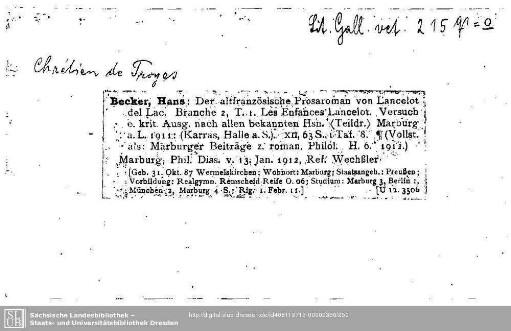 Lit. Gall. vet. 215
Chrétien de Troyes
Becker, Hans: Der altfranzösische Prosaroman von Lancelot
del Lac. Branche 2, T. 1. Les Enfances Lancelot. Versuch
e. krit. Ausg. nach allen bekannten Hsn. (Teildr.) Marburg
a. L. 1911: (Karras, Halle a. S.). XII, 63 S., 1 Taf. 8. ¶ (Vollst.
als: Marburger Beiträge z. roman. Philol. H. 6. 1912.)
Marburg, Phil. Diss. v. 13; Jan. 1912, Ref. Wechßler
[Geb. 31. Okt. 87 Wermelskirchen; Wohnort: Marburg; Staatsangeh.: Preußen;
Vorbildung: Realgymn. Remscheid Reife O. 06; Studium: Marburg 3, Berlin 1,
München 2, Marburg 4 S.; Rig. 1. Febr. 11.] [U 12. 3506
SLUB
Sächsische Landesbibliothek –
Staats- und Universitätsbibliothek Dresden